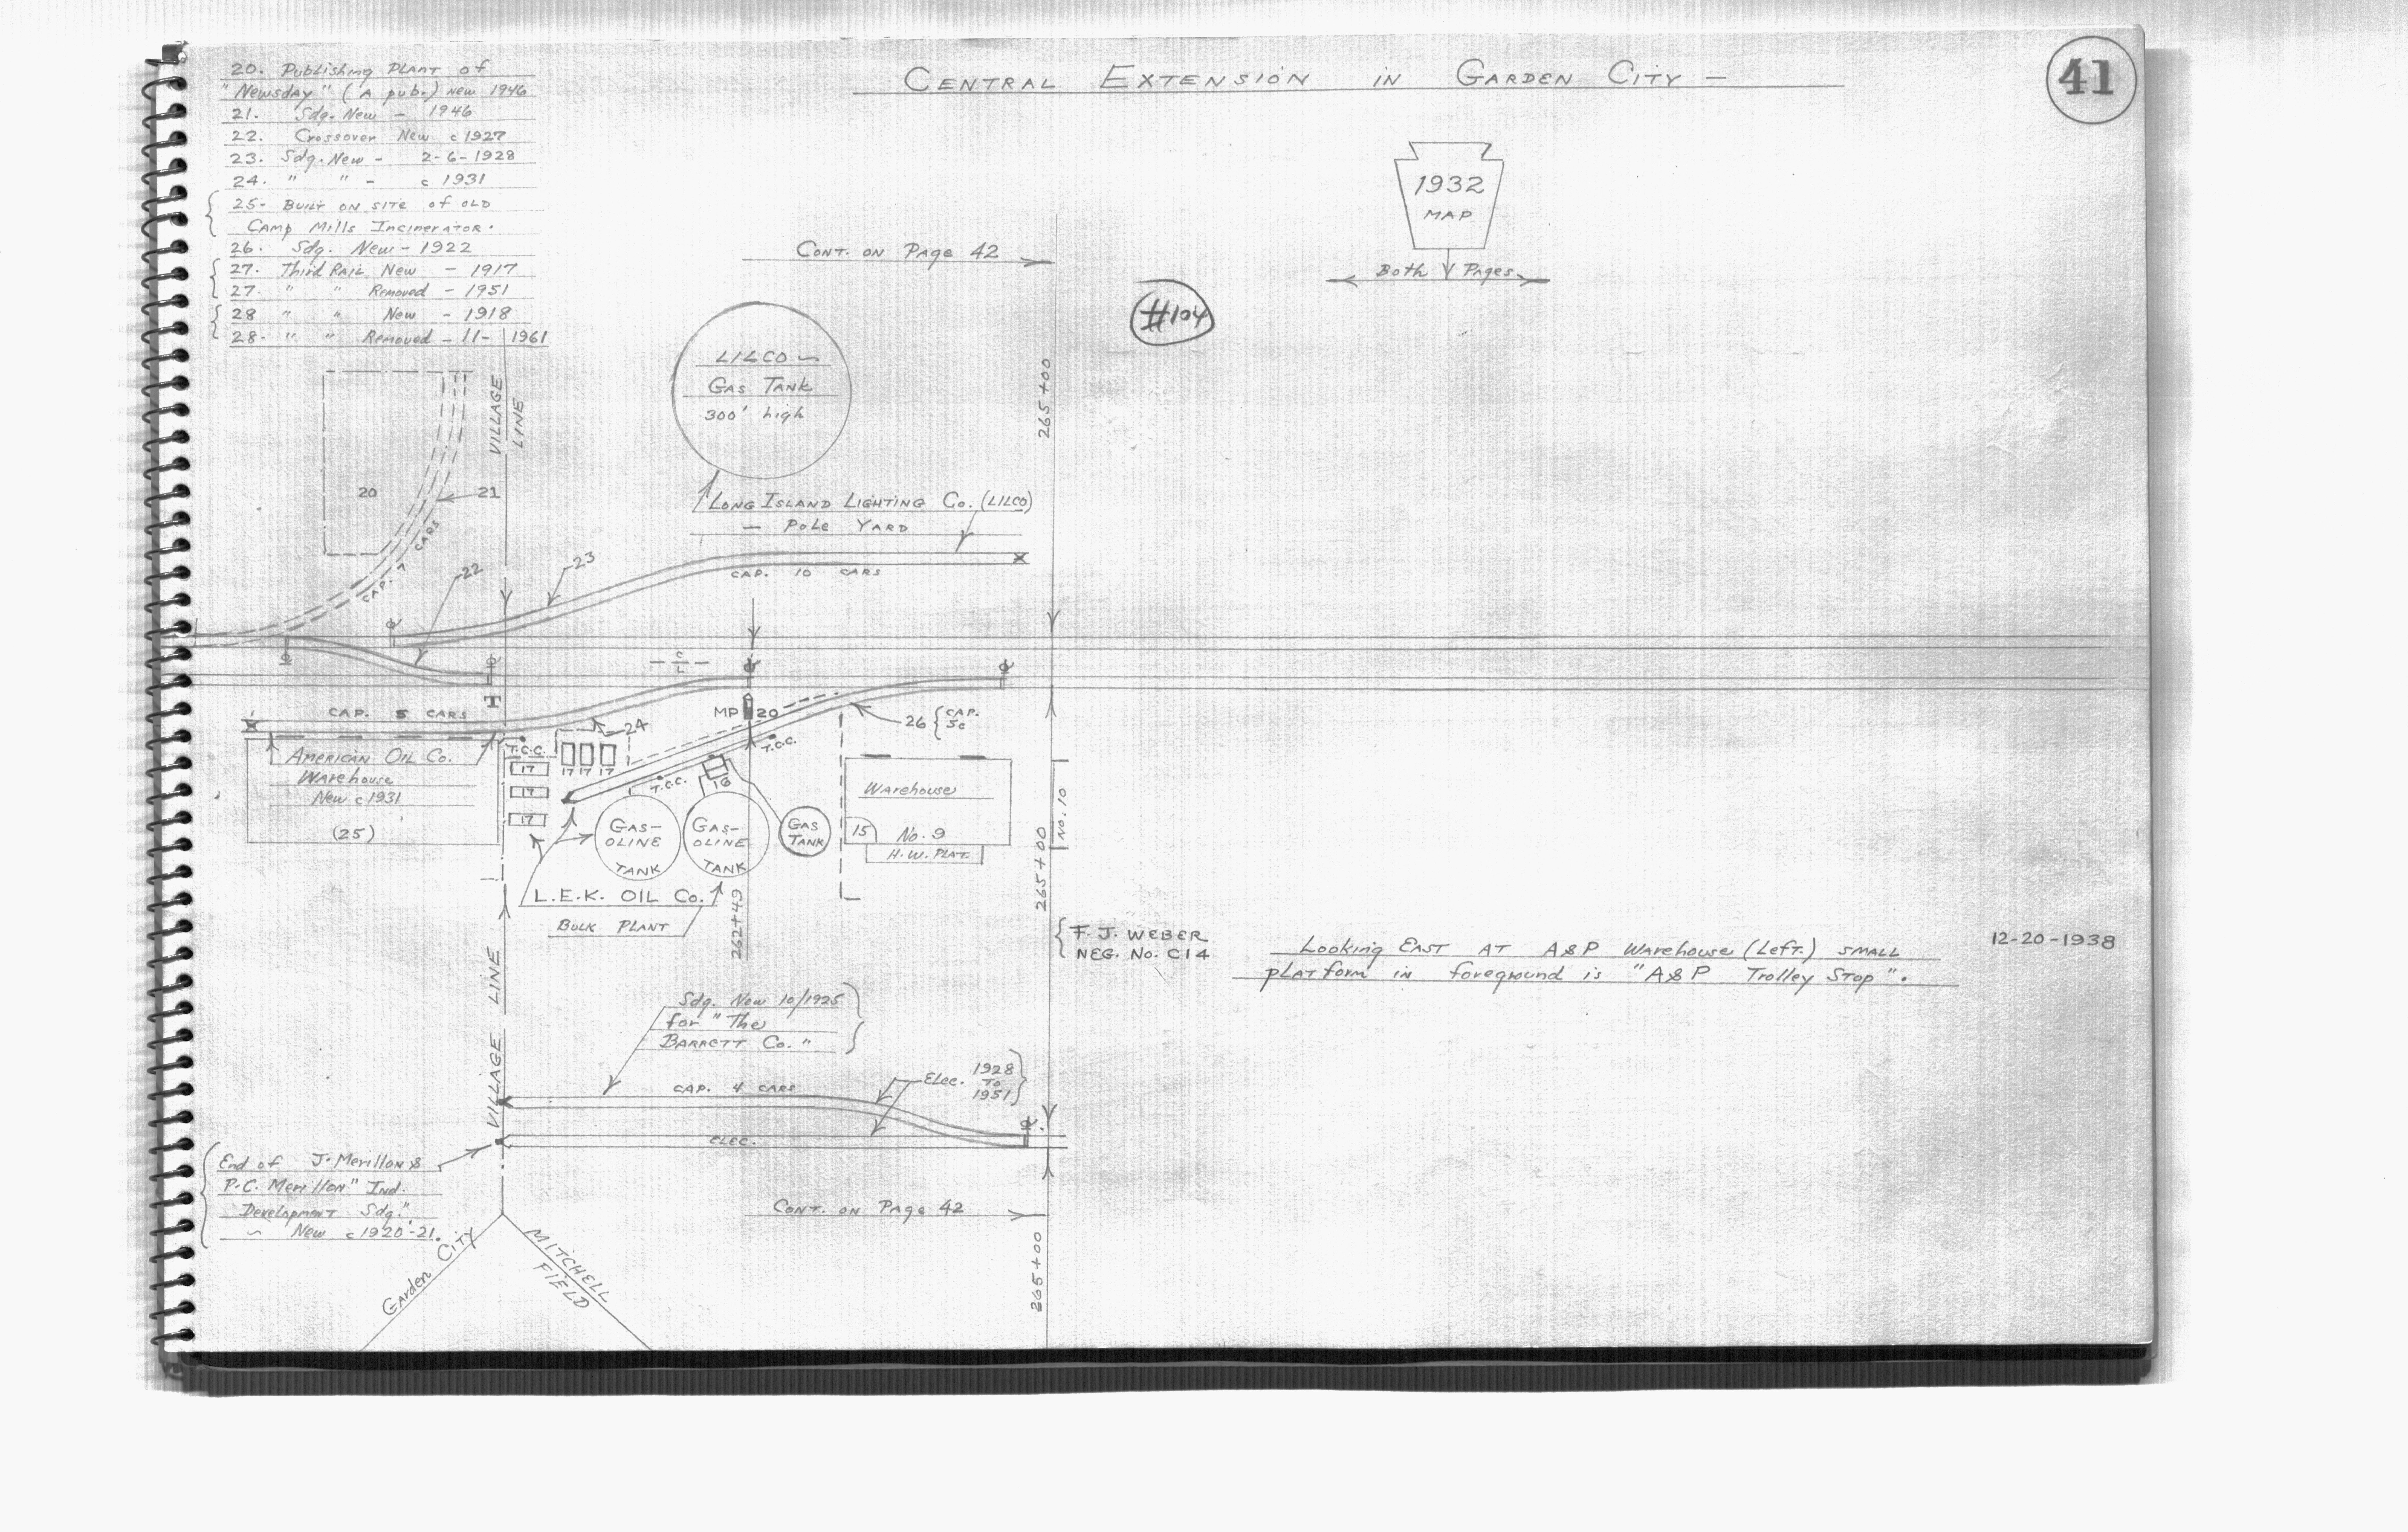 41
CENTRAL EXTENSION IN GARDEN CITY —
20. Publishing PLANT of
"Newsday" (A pub.) New 1946
21. Sdg. New - 1946
22. Crossover New c 1927
23. Sdg. New - 2-6-1928
24. " " - c 1931
25- BUILT ON SITE of OLD
CAMP Mills INCINERATOR.
26. Sdg. New - 1922
27. Third RAIL New - 1917
27. " " Removed - 1951
28 " " New - 1918
28. " " Removed - 11- 1961
1932
MAP
Both Pages
CONT. ON PAge 42
#104
LILCO
GAS TANK
300' high
265+00
VILLAGE
LINE
20
21
CAP. 7 CARS
LONG ISLAND LIGHTING Co. (LILCO)
— Pole YARD
22
23
CAP. 10 CARS
C
L
T
CAP. 5 CARS
24
MP 20
26 { CAP.
5c
T.C.C.
T.C.C.
AMERICAN OIL Co.
WArehouse
New c 1931
(25)
17
17
17
17 17 17
T.C.C.
16
GAS-
OLINE
TANK
GAS-
OLINE
TANK
GAS
TANK
WArehouse
15
No. 9
H.W. PLAT.
No. 10
265+00
L.E.K. OIL Co.
BULK PLANT
262+49
F. J. WEBER
NEG. No. C14
Looking EAST AT A&P WArehouse (Left.) SMALL
plATform in foreground is "A&P Trolley STOP".
12-20-1938
Sdg. New 10/1925
for "The
BARRETT Co."
VILLAGE LINE
CAP. 4 CARS
Elec. 1928
TO
1951
ELEC.
End of J. Merillon &
P.C. Merillon" Ind.
Development Sdg."
~ New c 1920'-21.
CONT. ON PAge 42
GArden CITY
MITCHELL
FIELD
265+00